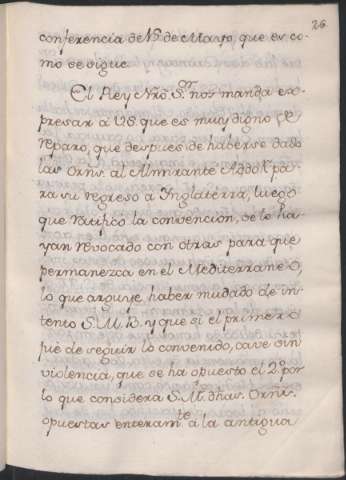 26
conferencia de N.º de Março, que es co-
mo se sigue.
El Rey Nrõ. S.or nos manda ex-
presar a VS. que es muy digno de
reparo, que despues de haberse dado
las Orns. al Almirante Addok pa-
ra su regreso a Inglaterra, luego
que ratificó la convencion, se le ha-
yan revocado con otras para que
permanezca en el Mediterraneo,
lo que arguye haber mudado de in-
tento S. M. B. y que si el primero
fue de seguir lo convenido, cave sin
violencia, que se ha opuesto el 2.º por
lo que considera S. M. dhas. Orns.
opuestas enteram.te á la antigua